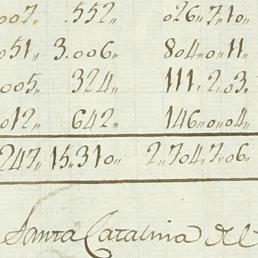 007,, .552,, 026,,7,,10,,
051,, 3.006,, 804,,0,,11,,
005,, 324,, 111,,2,,03,,
012,, 642,, 146,,0,,04,,
247,, 15.310,, 2,,704,,7,,06,,
Santa Catalina del